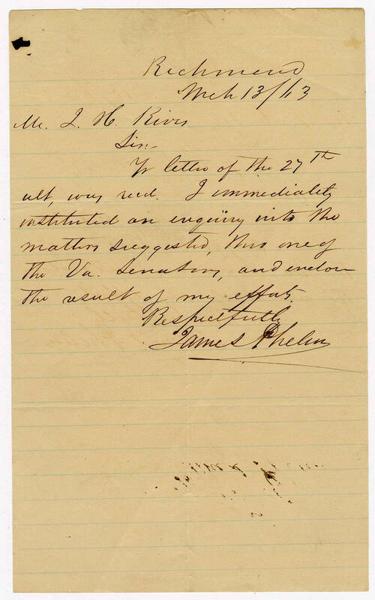 Richmond
Mch 13/63
Mr. J. H. Rives
Sir:-
Yr letter of the 27th
ult, was recd. I immediately
instituted an enquiry into the
matters suggested, thro one of
the Va. Senators, and enclose
the result of my effort.
Respectfully
James Phelan